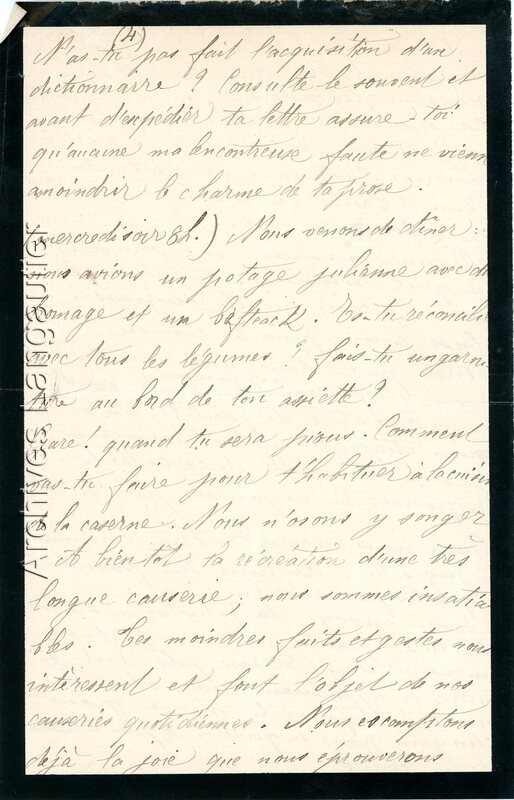 (4)
N'as-tu pas fait l'acquisition d'un
dictionnarre ? Consulte-le souvent et
avant d'expédier ta lettre assure-toi
qu'aucune malencontreuse faute ne vienn
amoindrir le charme de ta prose.
(mercredi soir 8h.) Nous venons de dîner :
nous avions un potage julienne avec du
fromage et un bifteack. Es-tu réconcilié
avec tous les légumes ? fais-tu un garni
ture au bord de ton assiette ?
Gare ! quand tu sera pious. Comment
vas-tu faire pour t'habituer à la cuisin
de la caserne. Nous n'osons y songer
- A bientôt la récréation d'une très
longue causerie ; nous sommes insatia
bles. Tes moindres faits et gestes nous
intéressent et font l'objet de nos
causeries quotidiennes. Nous escomptons
déjà la joie que nous éprouverons
Archives Langautier